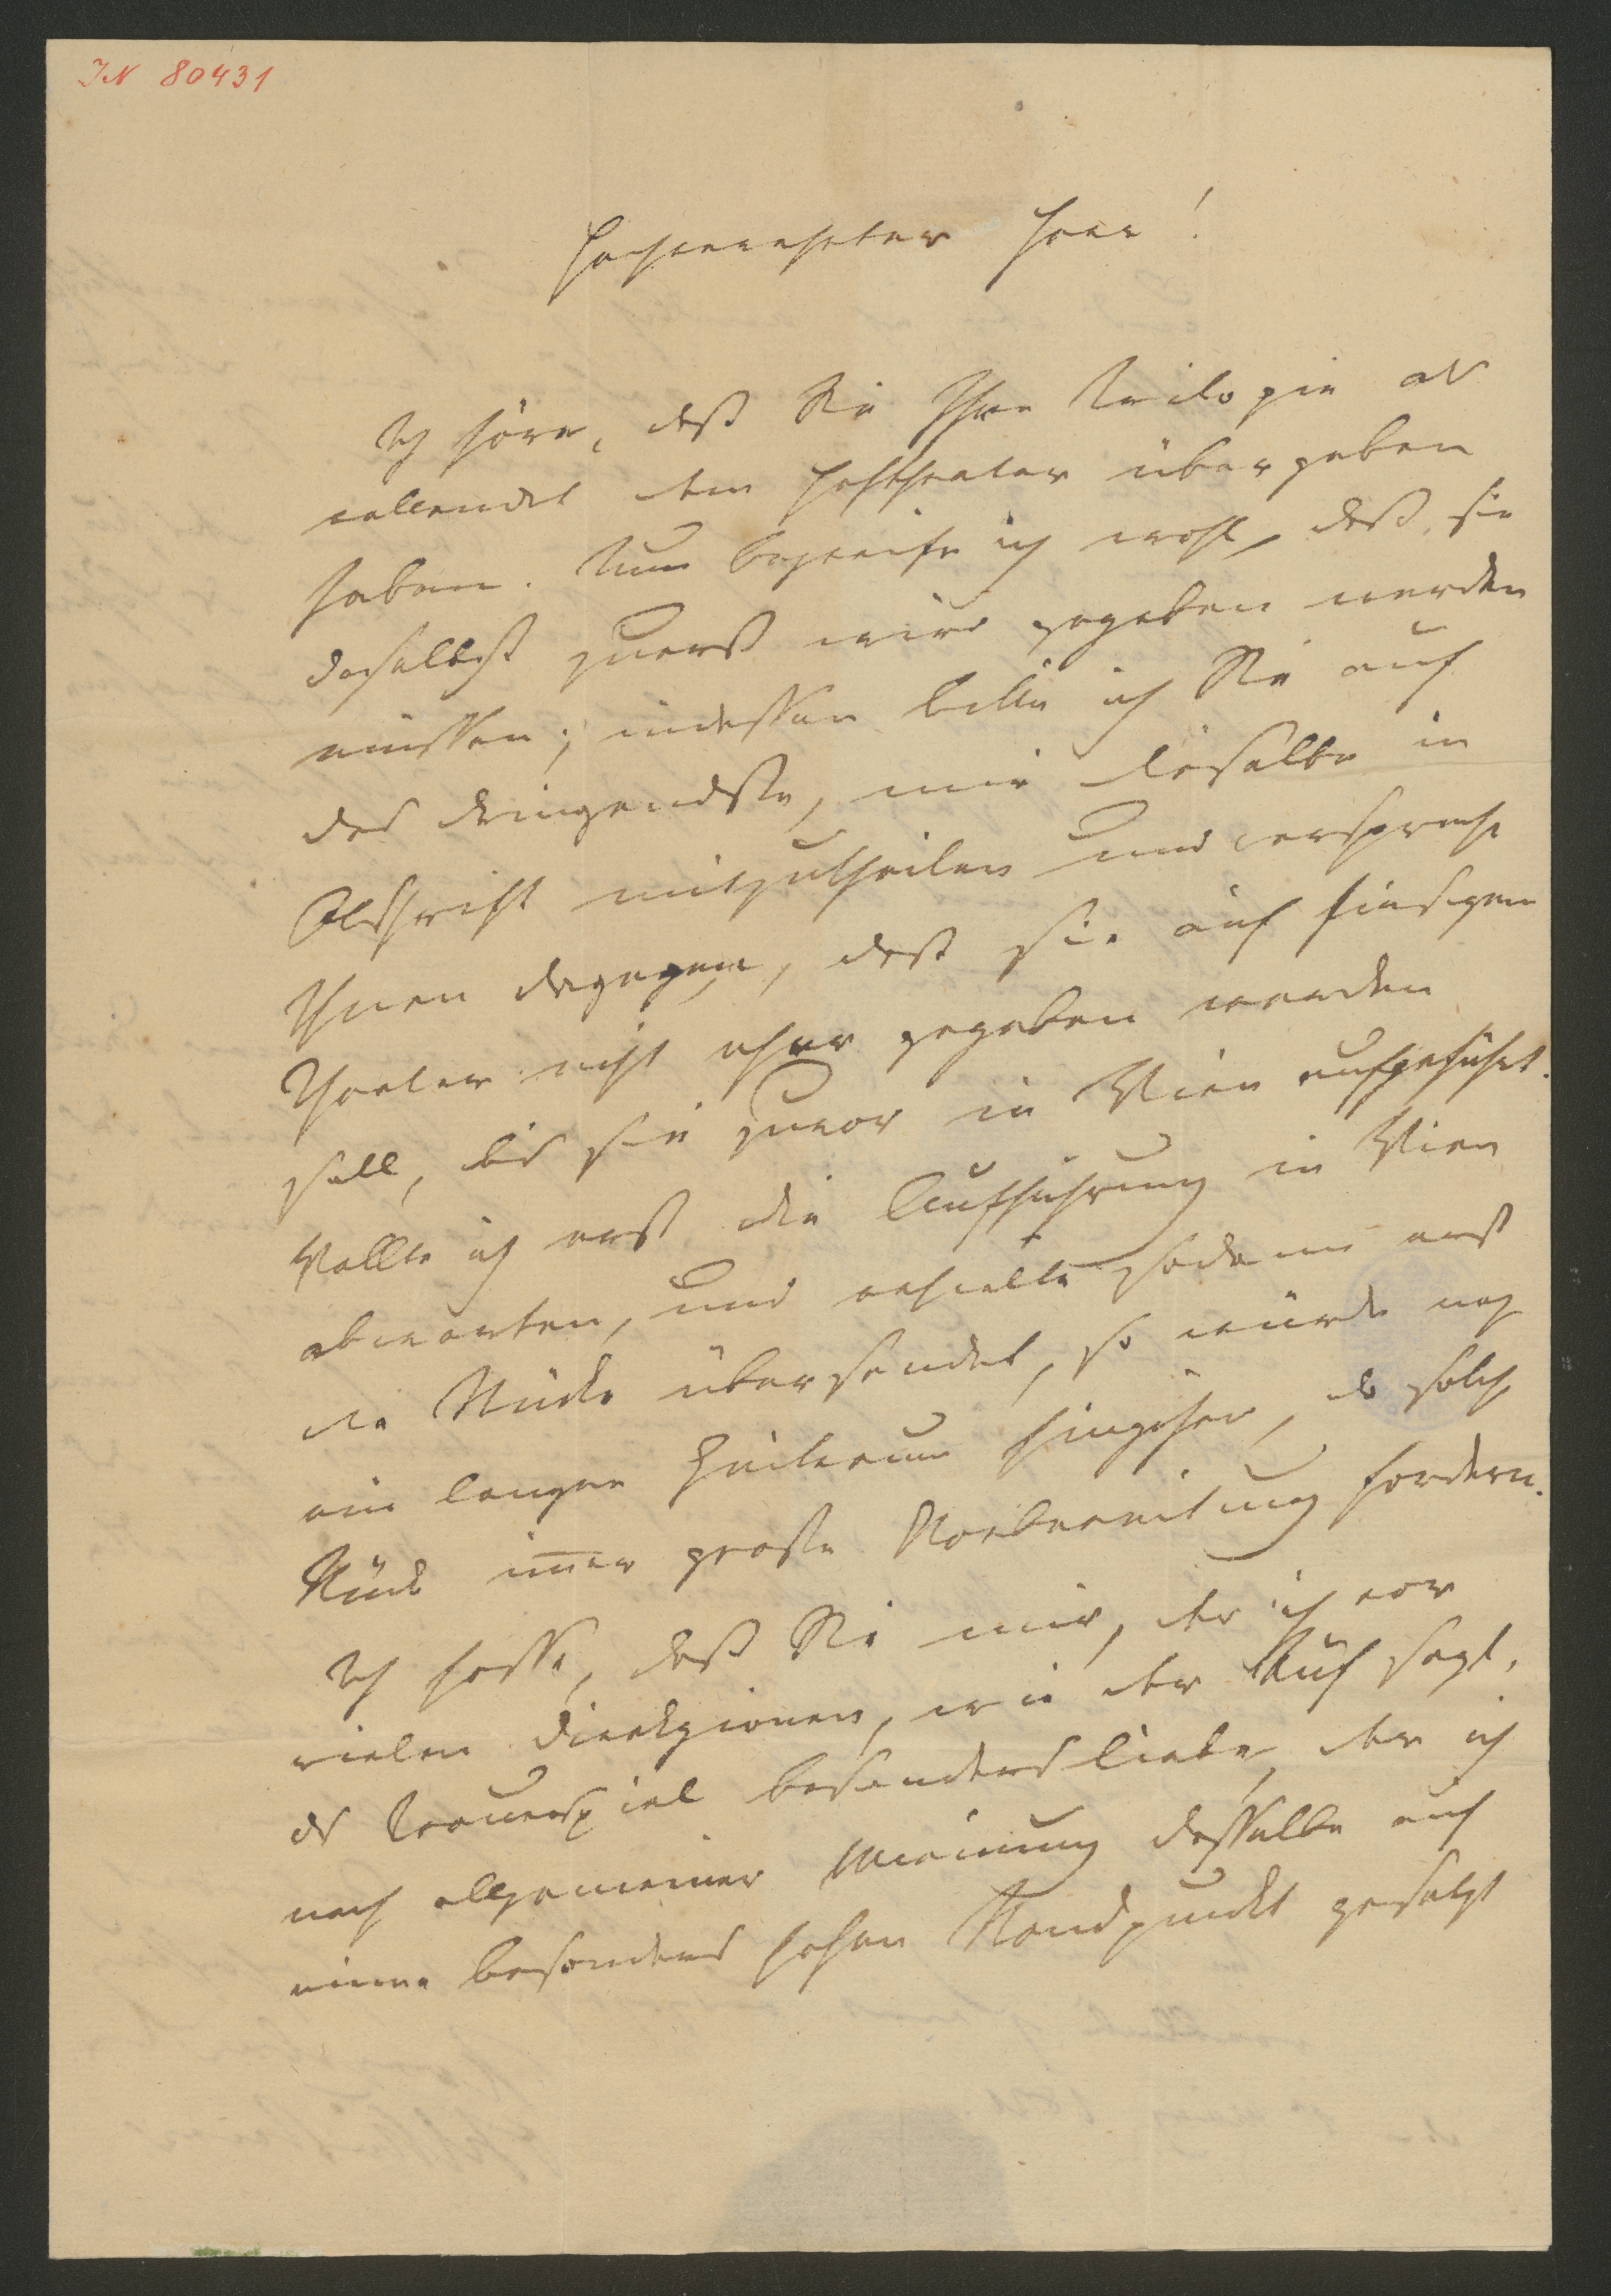 IN 80431
Hochverehrter Herr!
Ich höre, daß Sie Ihre Trilogie als
vollendet dem Hoftheater übergeben
haben. Nun begreife ich wohl, daß sie
daselbst zuerst wird gegeben werden
müssen; indessen bitte ich Sie auf
das dringendste, mir dieselbe in
Abschrift mitzutheilen und verspreche
Ihnen dagegen, daß sie auf hiesigem
Theater nicht eher gegeben werden
soll, bis sie zuvor in Wien aufgeführt.
Wollte ich erst die Aufführung in Wien
abwarten, und erhielte sodann erst
die Stücke übersendet, so würde noch
ein langer Zeitraum hingehen, da solche
Stücke immer große Vorbereitung fordern.
Ich hoffe, daß Sie mir, der ich vor
vielen Direkzionen, wie der Ruf sagt,
das Trauerspiel besonders liebe, der ich
nach allgemeiner Meinung dasselbe auf
einen besonders hohen Standpunkt gesetzt